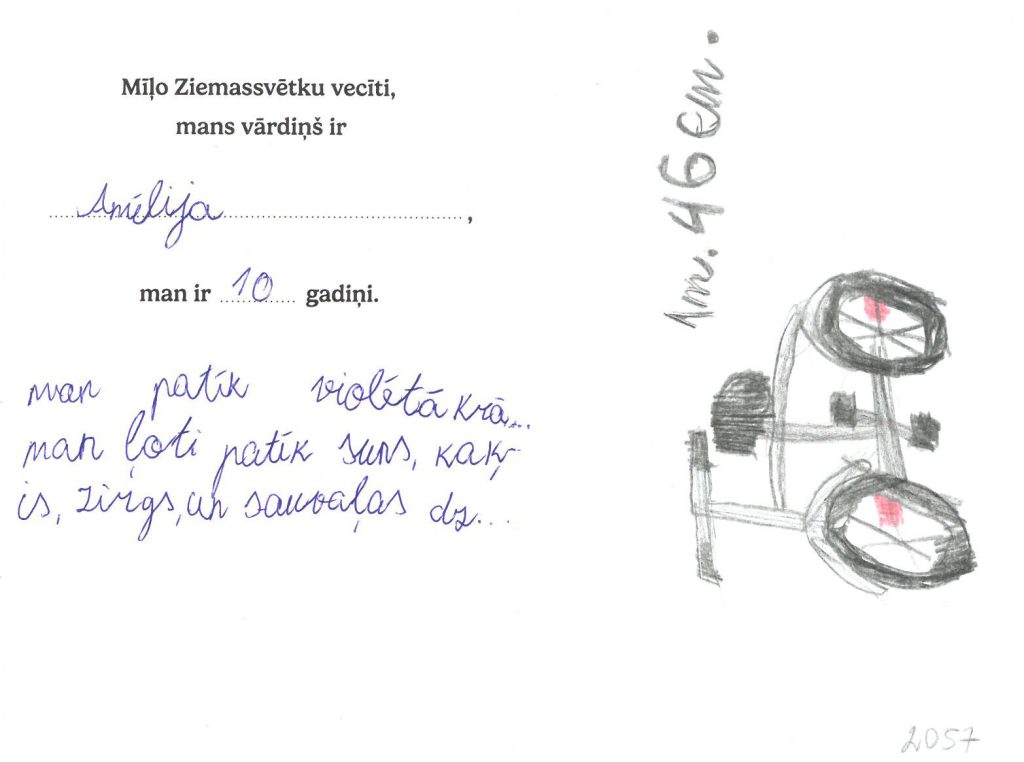 Mīļo Ziemassvētku vecīti,
mans vārdiņš ir
Amēlija,
man ir 10 gadiņi.
man patīk violētā krā...
man ļoti patīk suns, kaķ-
is, zirgs, un savvaļas dz...
1m. 46 cm.
2057